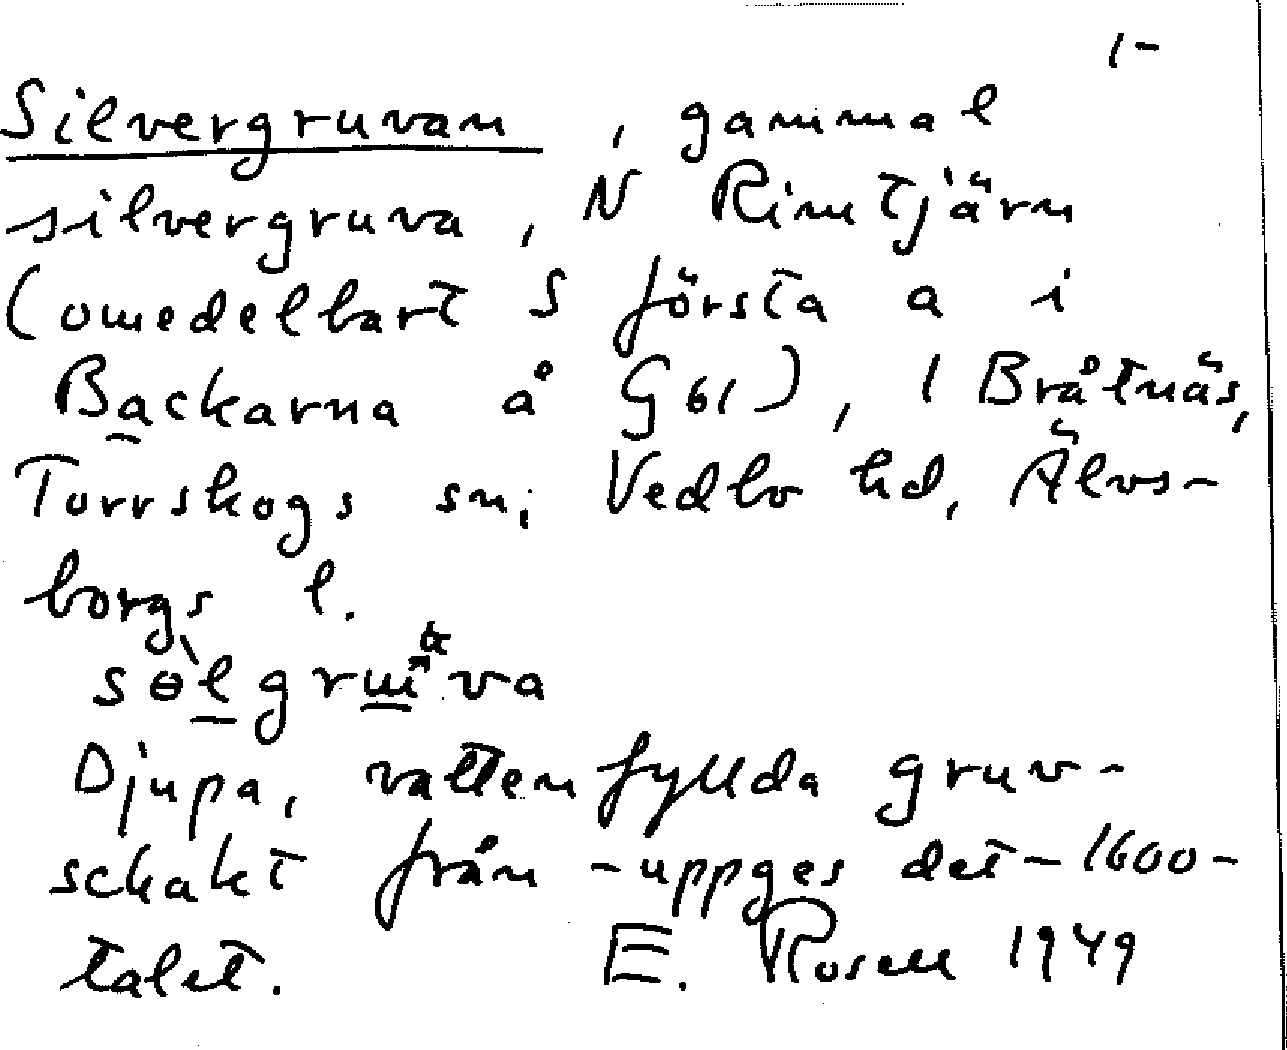 1-
Silvergruvan, gammal
silvergruva, N Rimtjärn
(omedelbart S första a i
Backarna å G61), 1 Bråtnäs,
Torrskogs sn, Vedbo hd, Älvs-
borgs l.
Djupa, vattenfyllda gruv-
schakt från - uppges det - 1600-
talet. E. Rosell 1949